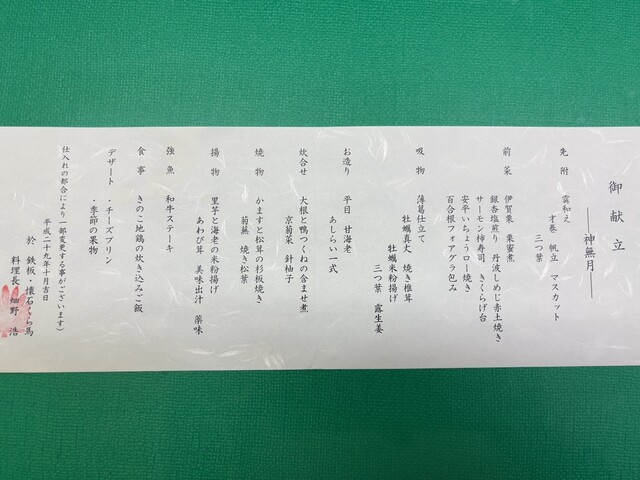 御献立
―神無月―
先附　霙和え
才巻　帆立　マスカット
三つ葉
前菜　伊賀栗　栗蜜煮
銀杏塩煎り　丹波しめじ赤土焼き
サーモン柿寿司　きくらげ台
安平いちょうロー焼き
百合根フォアグラ包み
吸物　薄葛仕立て
牡蠣真丈　焼き椎茸
牡蠣米粉揚げ
三つ葉　露生姜
お造り　平目　甘海老
あしらい一式
炊合せ　大根と鴨つくねの含ませ煮
京菊菜　針柚子
焼物　かますと松茸の杉板焼き
菊蕪　焼き松葉
揚物　里芋と海老の米粉揚げ
あわび茸　美味出汁　薬味
強魚　和牛ステーキ
食事　きのこ地鶏の炊き込みご飯
デザート　・チーズプリン
・季節の果物
（仕入れの都合により一部変更する事がございます）
平成二十九年十月吉日
於　鉄板・懐石くら馬
料理長　畑野　浩